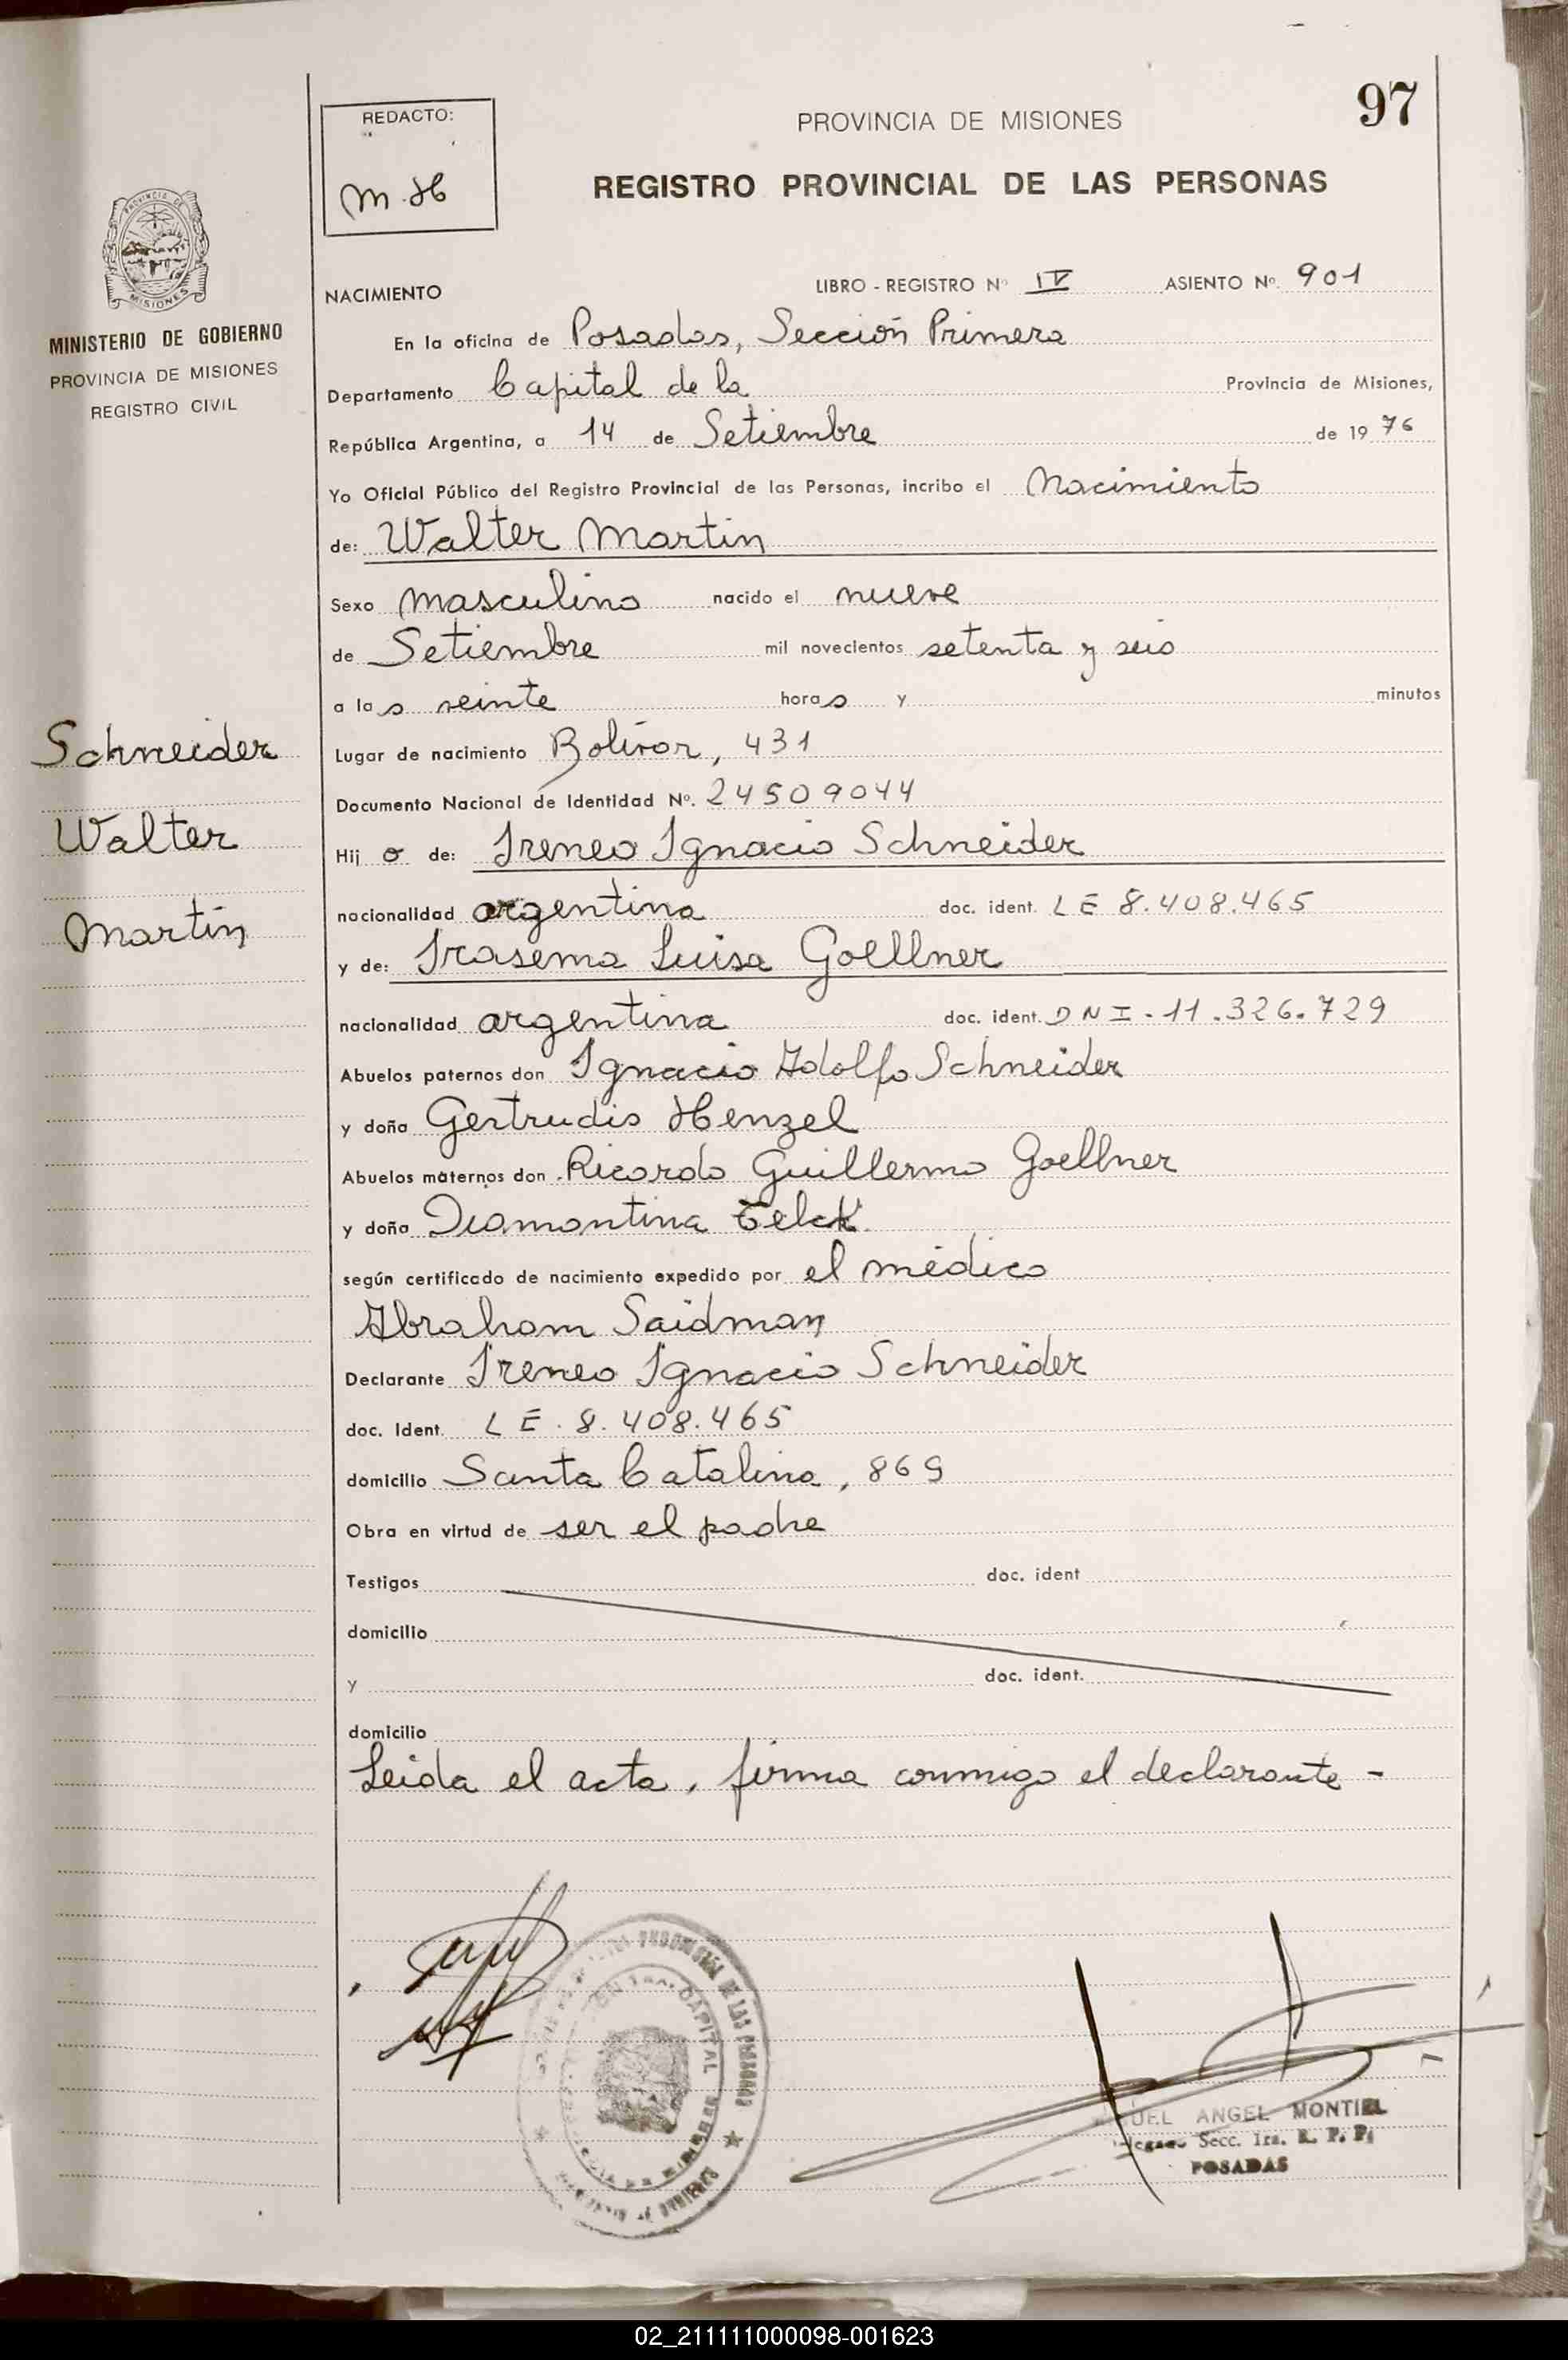 97
REDACTO:
M.H
PROVINCIA DE MISIONES
REGISTRO PROVINCIAL DE LAS PERSONAS
PROVINCIA DE
MISIONES
MINISTERIO DE GOBIERNO
PROVINCIA DE MISIONES
REGISTRO CIVIL
Schneider
Walter
Martin
NACIMIENTO LIBRO - REGISTRO Nº IV ASIENTO Nº. 901
En la oficina de Posadas, Sección Primera
Departamento Capital de la Provincia de Misiones,
República Argentina, a 14 de Setiembre de 19 76
Yo Oficial Público del Registro Provincial de las Personas, incribo el Nacimiento
de: Walter Martin
Sexo masculino nacido el nueve
de Setiembre mil novecientos setenta y seis
a las veinte horas y minutos
Lugar de nacimiento Bolívar, 431
Documento Nacional de Identidad Nº. 24509044
Hijo de: Ireneo Ignacio Schneider
nacionalidad argentina doc. ident. LE 8.408.465
y de: Irasema Luisa Goellner
nacionalidad argentina doc. ident. DNI-11.326.729
Abuelos paternos don Ignacio Adolfo Schneider
y doña Gertrudis Henzel
Abuelos maternos don Ricardo Guillermo Goellner
y doña Diamantina Telck
según certificado de nacimiento expedido por el médico
Abraham Saidman
Declarante Ireneo Ignacio Schneider
doc. Ident. LE. 8.408.465
domicilio Santa Catalina, 869
Obra en virtud de ser el padre
Testigos doc. ident
domicilio
y doc. ident.
domicilio
Leida el acta, firma conmigo el declarante -
CAPITAL
ANGEL MONTIEL
Secc. 1ra. R. P. P.
POSADAS
02_211111000098-001623